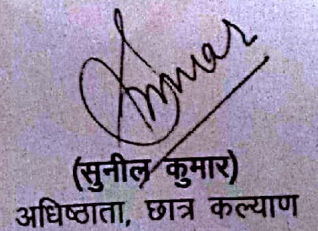 (सुनील कुमार)
अधिष्ठाता, छात्र कल्याण